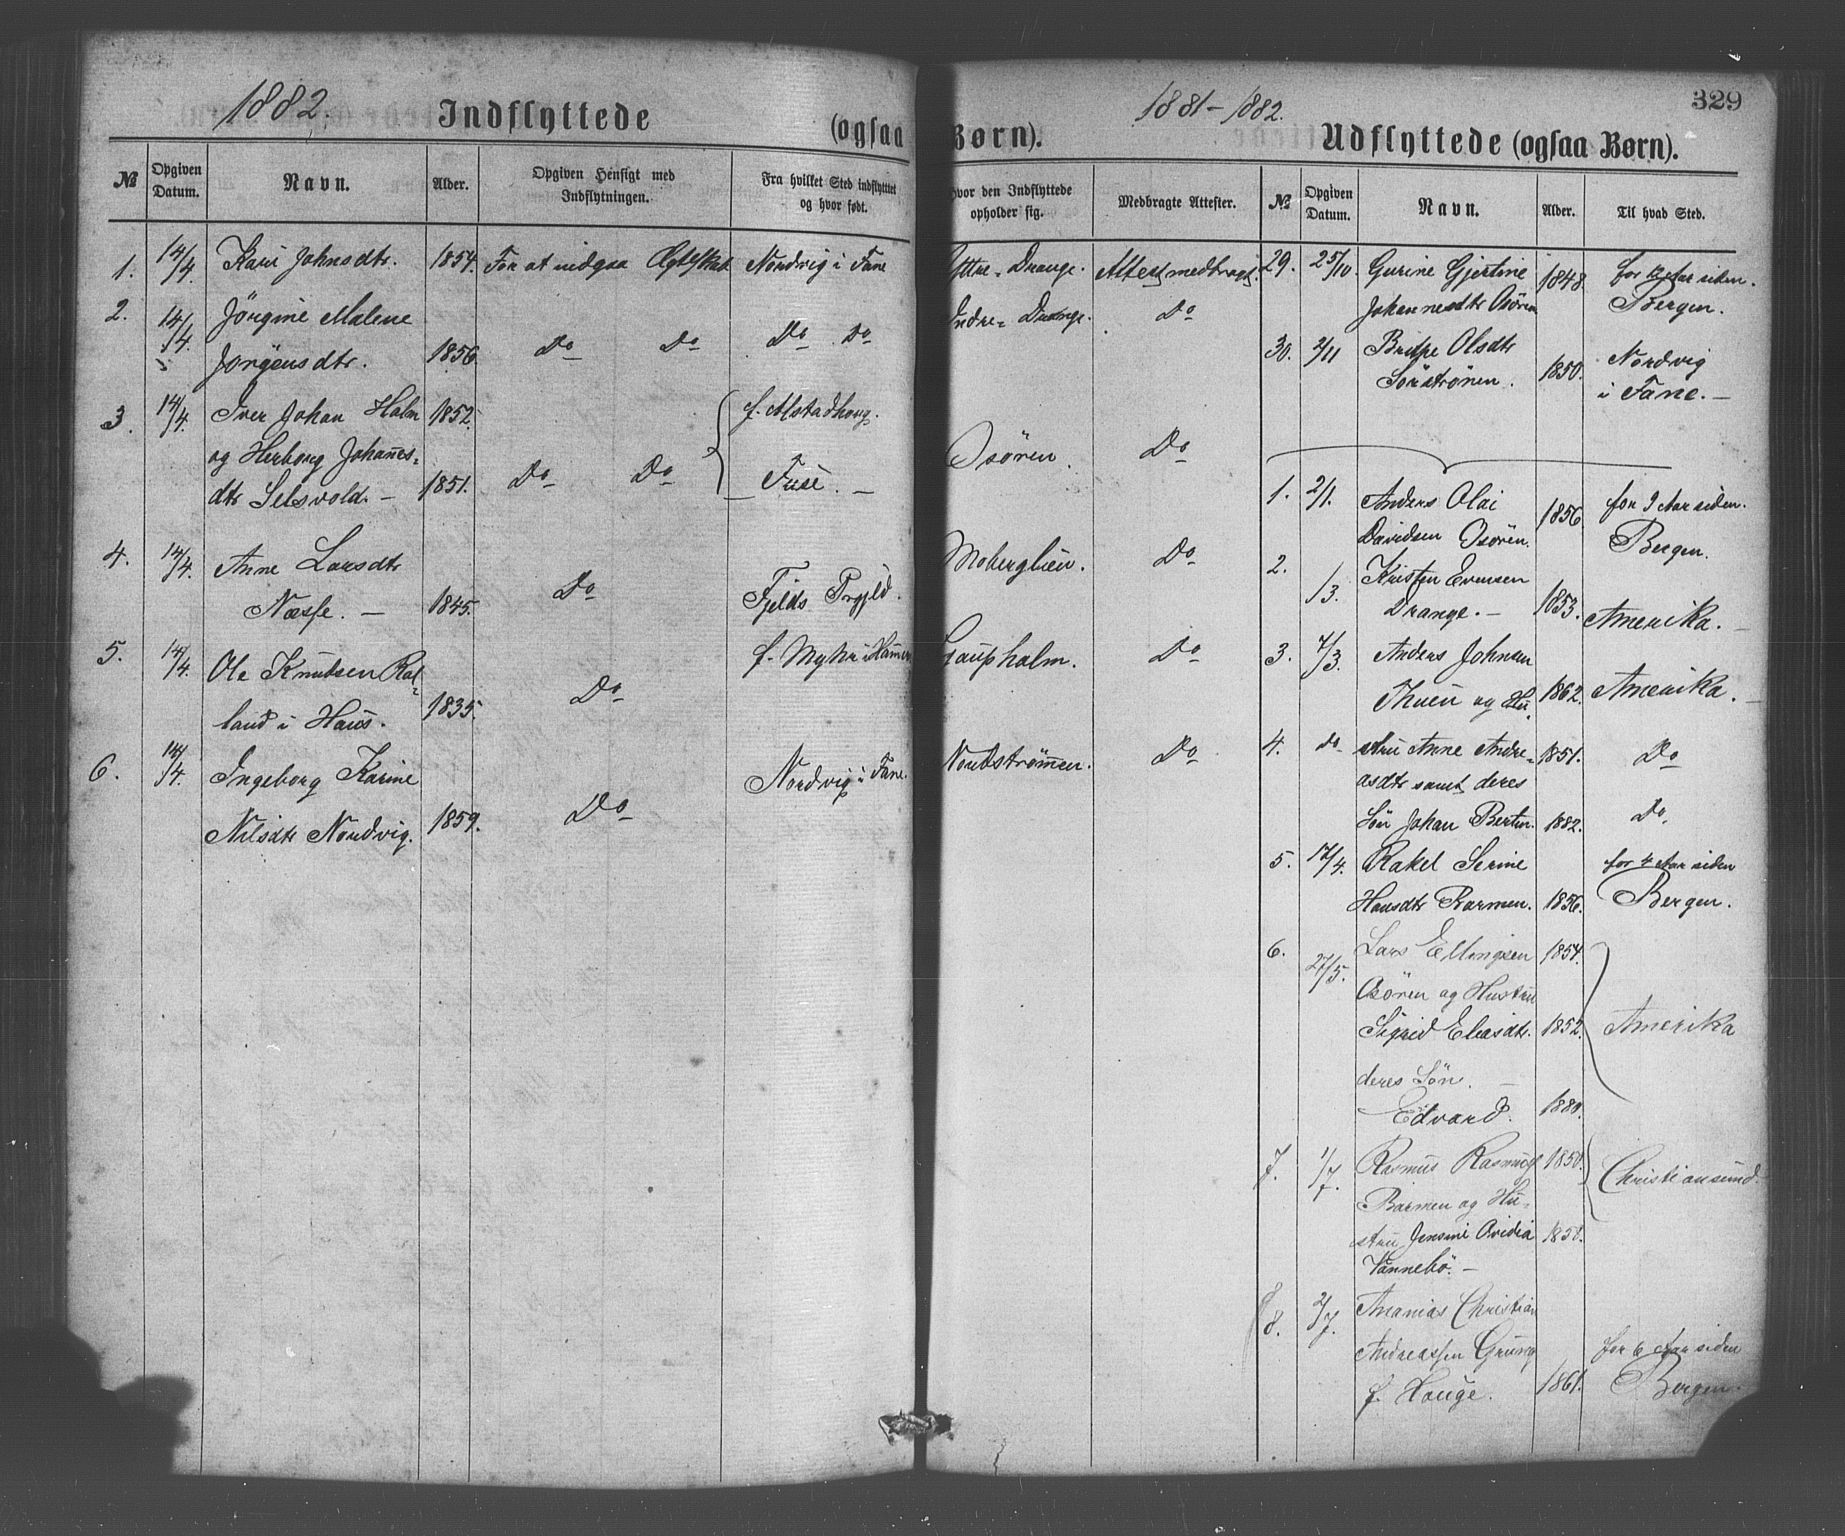 1882. Indflyttede (ogsaa Børn).
№
Opgiven Datum.
Navn.
Alder.
Opgiven Hensigt med Indflytningen.
Fra hvilket Sted indflyttet og hvor født.
Hvor den Indflyttede opholder sig.
Medbragte Attester.
1. 14/4. Kari Johnsdtr. 1854. For at indgaa Ægteskab Nordvig i Fane Yttre-Drange. Attest medbragt.
2. 14/4. Jörgine Malene
Jörgensdtr. 1856. Do Do Do Do Indre-Drange. Do
3. 14/4. Iver Johan Holm 1852. f. Alstadhoug.
og Herborg Johannes- Do Do Osören. Do
dtr Selsvold. - 1851. Fuse. -
4. 14/4. Anne Larsdtr
Næsse. - 1845. Do Fjelds Prgjld. Moberglien. Do
5. 14/4. Ole Knudsen Rol-
land i Haus. 1835. Do f. Myhr i Hammer Gaupholm. Do
6. 14/4. Ingeborg Karine
Nilsdtr Nordvig. 1859. Do Nordvig i Fane. Nordströmen. Do
1881-1882. 329
Udflyttede (ogsaa Børn).
№
Opgiven Datum.
Navn.
Alder.
Til hvad Sted.
29. 25/10. Gurine Gjertine 1848. for 12 Aar siden.
Johannesdtr Osören Bergen.
30. 2/11 Brithe Olsdtr Nordvig
Sörströnen. 1850. i Fane. -
1. 2/1. Anders Olai 1856 for 9 Aar siden.
Davidsen Osören. Bergen.
2. /3. Kristen Evensen
Drange. - 1853. Amerika. -
3. 7/3. Anders Johnsen
Thuen og Hu- 1862. Amerika. -
4. do stru Anne Andre- 1851. Do
asdtr samt deres
Sön Johan Bertin. 1882. Do.
5. 17/4. Rakel Serine for 4 Aar siden
Hansdtr Barmen. 1856. Bergen.
6. 27/5. Lars Ellingsen 1854.
Osören og Hustru
Sigrid Eliasdtr. 1852. Amerika
deres Sön. -
Edvard. 1880.
7. 1/7. Rasmus Rasmus 1850. Christiansund.
Barmen og Hu-
stru Jensine Ovidia 1858.
Vannebö. -
8. 2/7. Ananias Christian
Andreassen Grung for 6 Aar siden
f. Houge. 1861. Bergen.